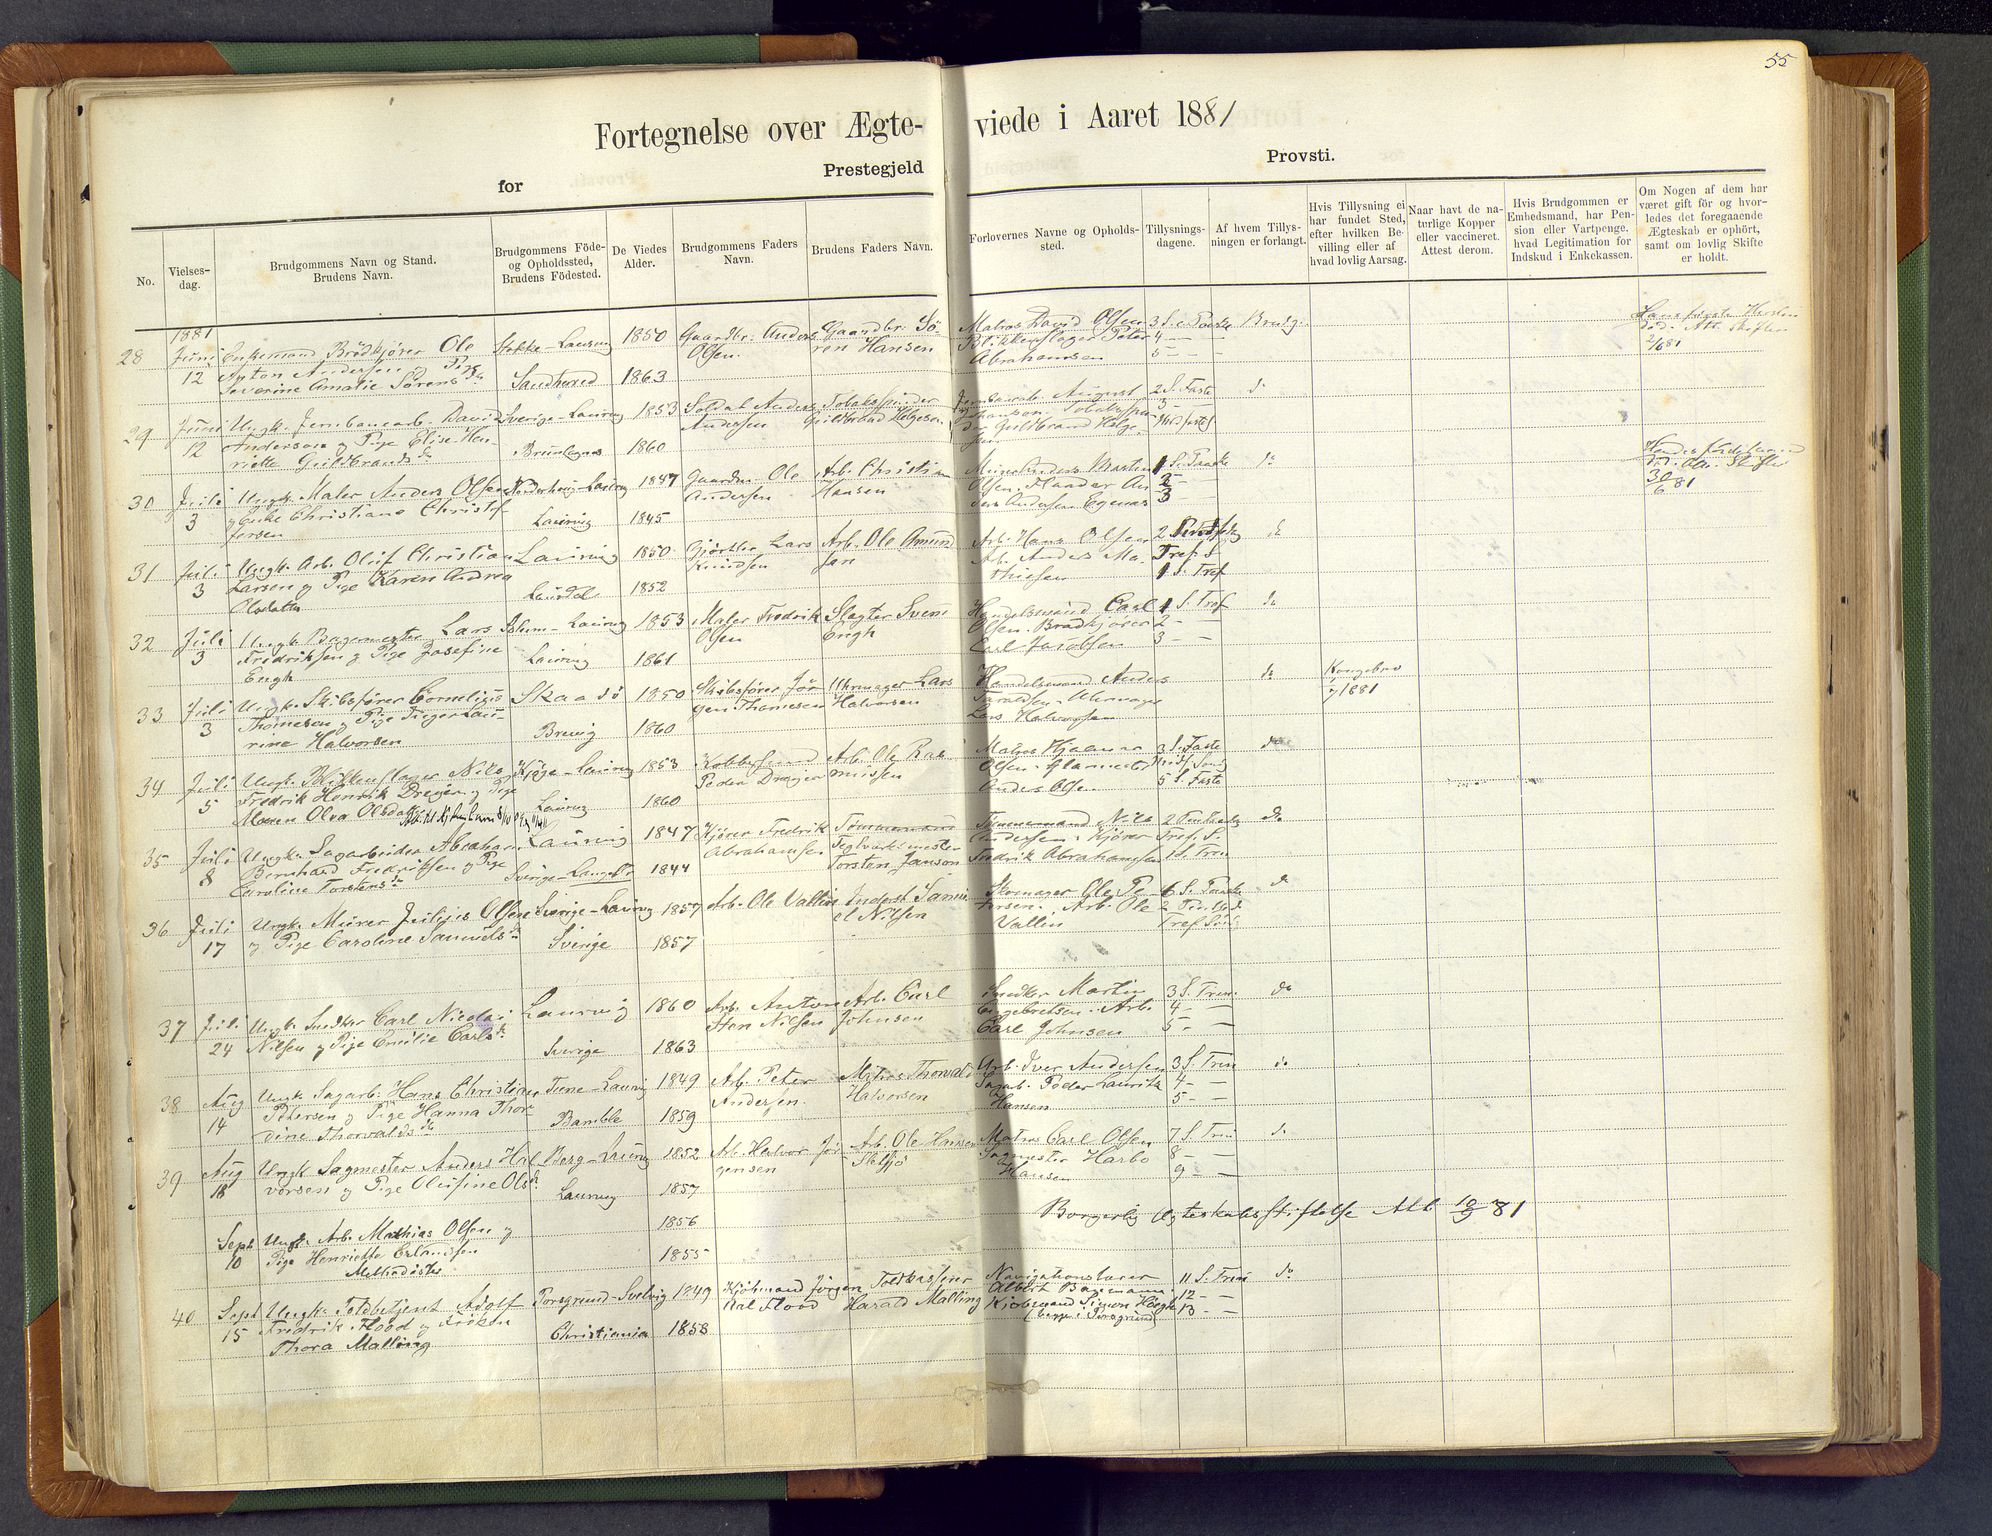 55
Fortegnelse over Ægteviede i Aaret 1881
for Prestegjeld Provsti.
No.
Vielsesdag.
Brudgommens Navn og Stand. Brudens Navn.
Brudgommens Føde- og Opholdssted, Brudens Fødested.
De Viedes Alder.
Brudgommens Faders Navn.
Brudens Faders Navn.
Forlovernes Navne og Opholdssted.
Tillysningsdagene.
Af hvem Tillysningen er forlangt.
Hvis Tillysning ei har fundet Sted, efter hvilken Bevilling eller af hvad lovlig Aarsag.
Naar havt de naturlige Kopper eller vaccineret. Attest derom.
Hvis Brudgommen er Embedsmand, har Pension eller Vartpenge. hvad Legitimation for Indskud i Enkekassen.
Om Nogen af dem har været gift før og hvorledes det foregaaende Ægteskab er ophørt, samt om lovlig Skifte er holdt.
1881
28 Juni 12 Enkemand Brödkjører Ole Anton Andersen og Pige Severine Amalie Sörensd
Stokke - Laurvig 1850 Gaardbr. Anders Olsen Gaardbr. Sören Hansen
Sandherred 1863
Matros David Olsen Blikkenslager Peter Abrahamsen
3 S. e Paaske 4 - - 5 - - Brudg.
29 Juni 12 Ungk. Jernbanearb. David Andersen og Pige Elise Henriette Guldbrandsd
Sverige - Laurvig 1853 Soldat Anders Andersen Tobakspinder Guldbrand Helgesen
Brunlagnes 1860
Jernbanearb. August Johansen. Tobakspinder Guldbrand Helgesen
2 S. Faste 3 - Midfaste S do
30 Juli 3 Ungk. Maler Anders Olsen og Enke Christiane Christofersen
Laurvig 1847 Gaardm. Ole Andersen Arb. Christian Hansen
Laurvig 1845
Martin Olsen. Anders Andersen
1 S. Paaske 2 - 3 - do
30/6 81
31 Juli 3 Ungk. Arb. Oluf Christian Larsen og Pige Karen Andrea Olsdatter
Laurvig 1850 Gjørtler Lars Knudsen Arb. Ole Amundsen
Laurdal 1852
Arb. Hans Olsen Arb. Anders Mathisen
Tref. S 1 S. Tref do
32 Juli 3 Ungk. Bagermester Lars Fredriksen og Pige Josefine Engh
Laurvig 1853 Maler Fredrik Olsen Slagter Sven Engh
Laurvig 1861
Handelsmand Carl Olsen. Brödkjører Carl Jacobsen
1 S. Tref 2 - 3 - - do
33 Juli 3 Ungk. Skibsfører Cornelius Thomesen og Pige Inger Laurine Halvorsen
Skaadö 1850 Skibsfører Jörgen Thomesen Uhrmager Lars Halvorsen
Brevig 1860
Handelsmand Anders Taraldsen - Uhrmager Lars Halvorsen
do Kongebrev 1881
34 Juli 5 Ungk. Blikkenslager Nils Fredrik Henrik Dreyer og Pige Maren Olva Olsdatter
Kjøge - Laurvig 1853 Peder Dreyer Arb. Ole Rasmussen
Laurvig 1860
Matros Hjalmar Olsen - Glarmester Anders Olsen
3 S. Faste Midf Sønd 5 S. Faste do
35 Juli 8 Ungk. Sagarbeider Abraham Bernhard Fredriksen og Pige Caroline Torstensd
Laurvig 1847 Kjører Fredrik Abrahamsen Tømmermand Teglværksmester Torsten Janson
Sverige - Langest 1844
Tømmermand Nils Andersen - Kjører Fredrik Abrahamsen
Tref. S. 1 S. Trin do
36 Juli 17 Ungk. Murer Julius Olsen og Pige Caroline Samuelsd
Sverige - Laurvig 1857 Arb. Ole Vallin Inderst Samuel Nilsen
Sverige 1857
Skomager Ole Petersen. Arb. Ole Vallin
6 S. Paaske Tref Sön do
37 Juli 24 Ungk. Snedker Carl Nicolai Nilsen og Pige Emilie Carlsd
Laurvig 1860 Arb. Anton Sten Nilsen Arb. Carl Johnsen
Sverige 1863
Snedker Martin Engebretsen. Arb. Carl Johnsen
3 S. Trin 4 - - 5 - - do
38 Aug 14 Ungk. Sagarb. Hans Christian Petersen og Pige Hanna Thorvine Thorvaldsd
Tune - Laurvig 1849 Arb. Peter Andersen. Matros Thorvald Halvorsen
Bamble 1859
Arb. Iver Andersen Sagarb. Peder Lauritz Hansen
3 S. Trin 4 - - 5 - - do
39 Aug 18 Ungk. Sagmester Anders Halvorsen og Pige Olufine Olsd
Berg - Laurvig 1852 Arb. Halvor Jörgensen Arb. Ole Hansen
Laurvig 1857
Matros Carl Olsen Sagmester Harbo Hansen
7 S. Trin 8 - - 9 - - do
Sept 10 Ungk. Arb. Mathias Olsen og Pige Henriette Erlandsen Methodister
1856
1855
Borgerlig Ægteskabsstiftelse Att 10/9 81
40 Sept 15 Ungk. Toldbetjent Adolf Fredrik Flood og Frøken Thora Malling
Porsgrund - Svelvig 1849 Kjöbmand Jörgen Flood Toldkasserer Harald Malling
Christiania 1858
Navigationslærer Albert Bagemann. Kjöbmand Simon Høegh (begge i Porsgrund)
11 S. Trin 12 - - 13 - - do